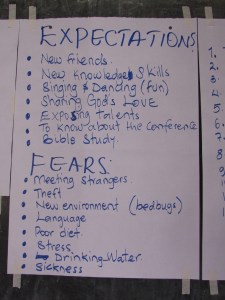 EXPECTATIONS
• New friends.
• New knowledge/Skills
• Singing & Dancing (fun)
• Sharing God's LOVE
• Exposing talents
• To know about the Conference
• Bible Study.
FEARS.
• Meeting strangers.
• Theft
• New environment (bedbugs)
• Language
• Poor diet
• Stress
• Drinking Water.
• Sickness
1.
2.
4.
5.
6.
7.
8.